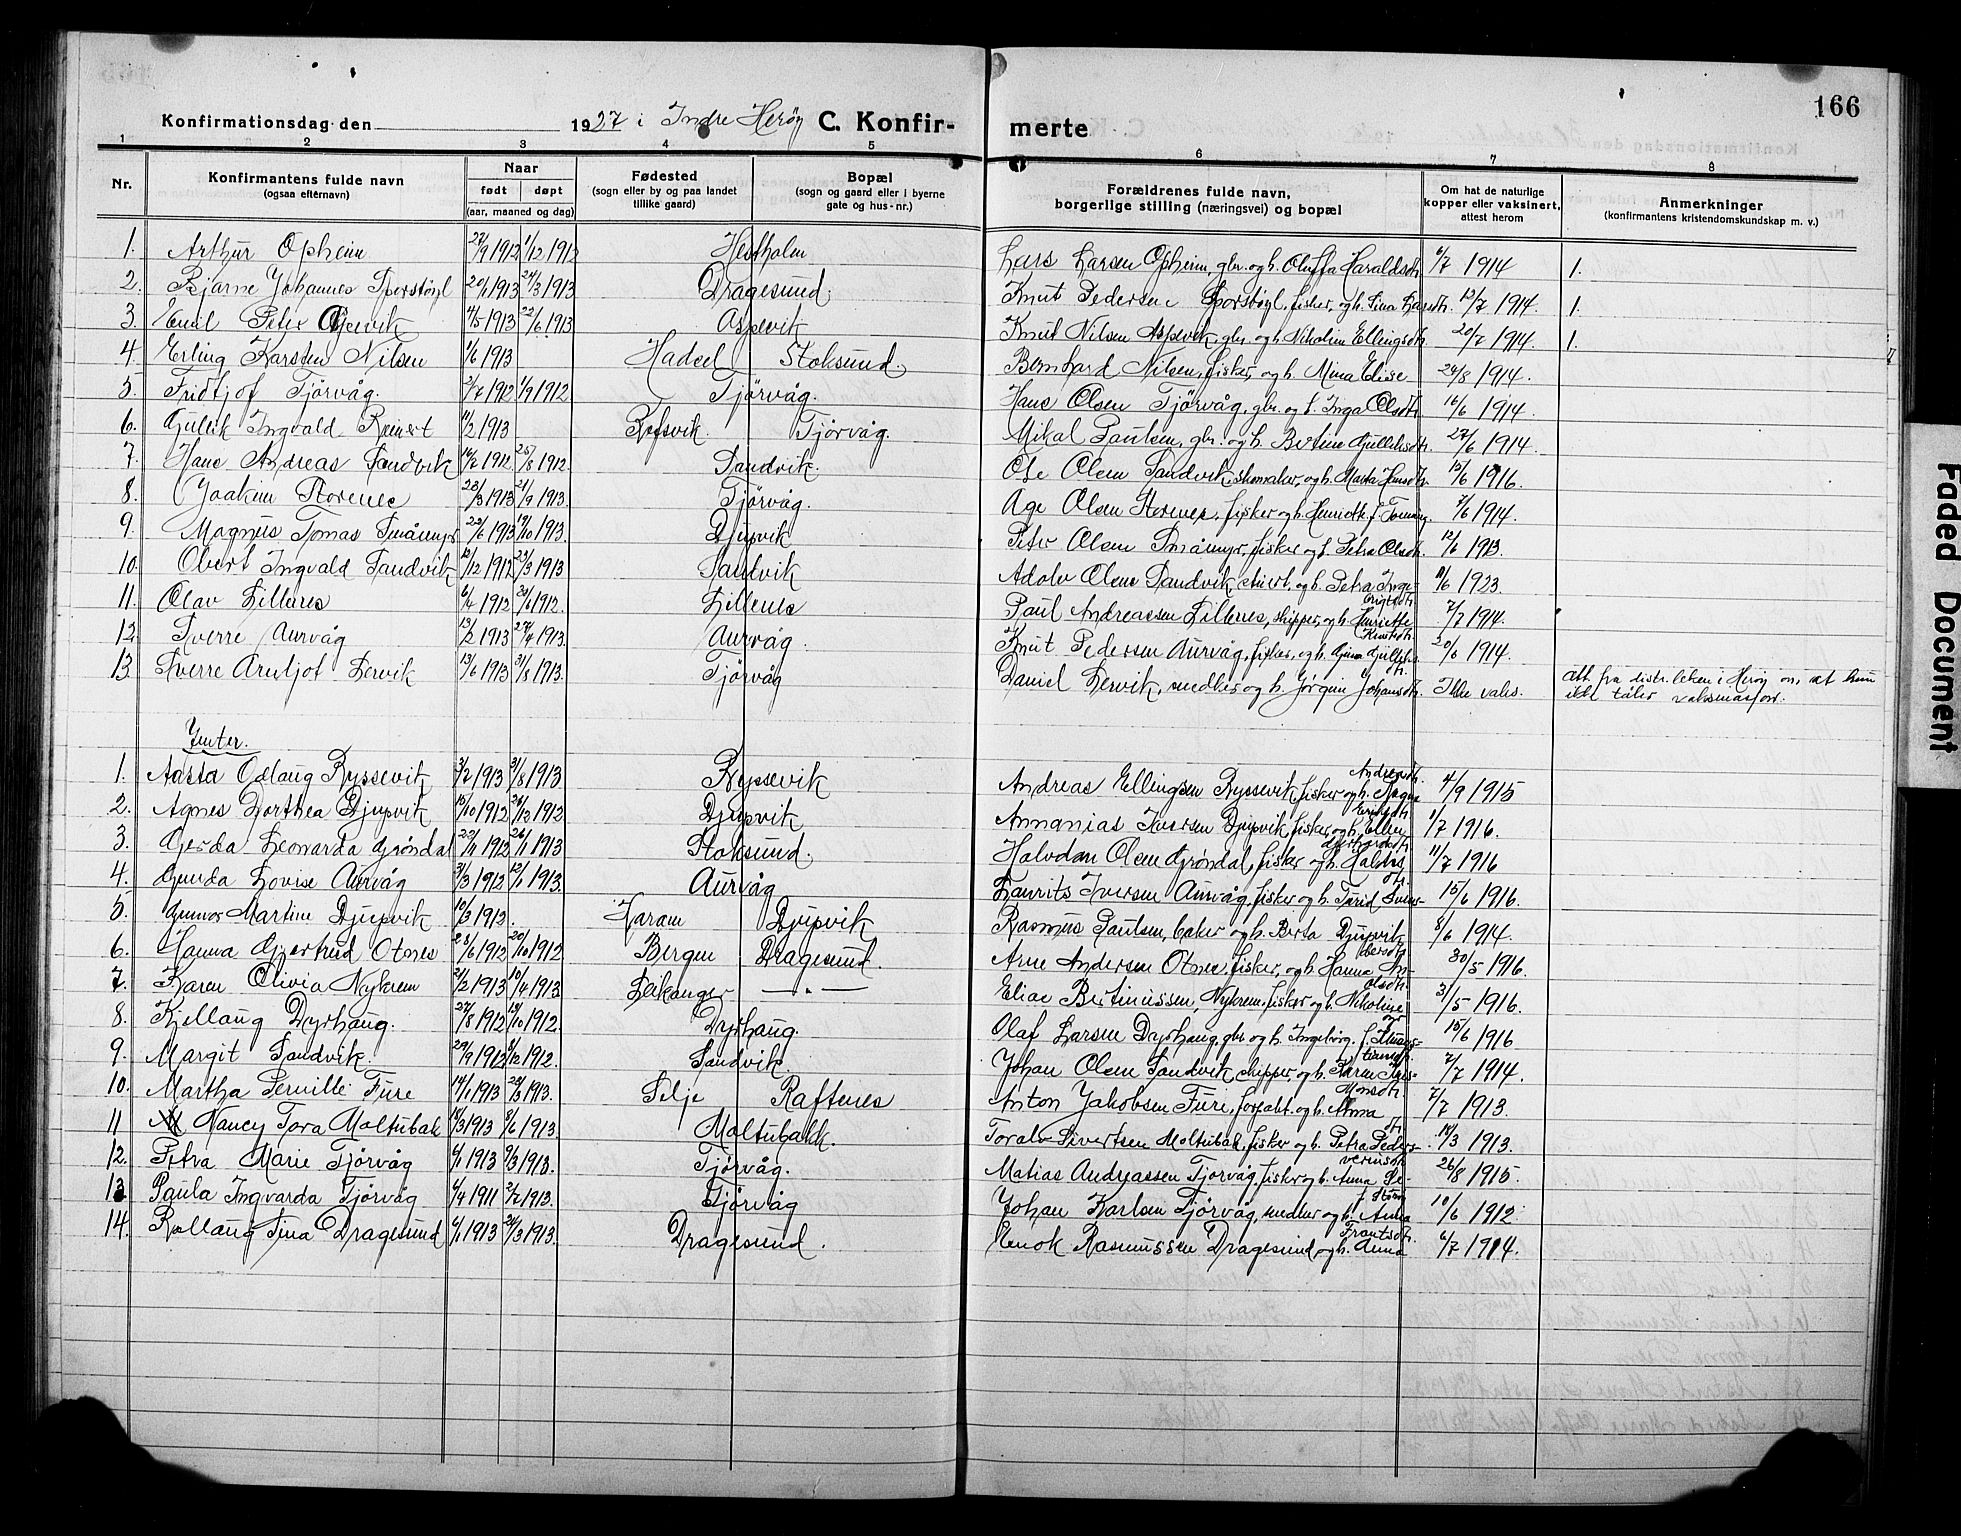 166
Konfirmationsdag den 1927 i Indre Herøy C. Konfirmerte
1 2 3 4 5 6 7 8
Nr. Konfirmantens fulde navn (ogsaa efternavn) Naar født døpt (aar, maaned og dag) Fødested (sogn eller by og paa landet tillike gaard) Bopæl (sogn og gaard eller i byerne gate og hus-nr.) Forældrenes fulde navn, borgerlige stilling (næringsvei) og bopæl Om hat de naturlige kopper eller vaksinert, attest herom Anmerkninger (konfirmantens kristendomskundskap m. v.)
1. Arthur Opheim 27/9 1912 1/12 1912 Hestholm Lars Larsen Opheim, gbr. og h. Oluffa Haraldsdtr. 6/7 1914 1.
2. Bjarne Johannes Sporstøyl 20/1 1913 24/3 1913 Dragesund. Knut Pedersen Sporstøyl, fisker, og h. Sina Larsdtr. 13/7 1914. 1.
3. Emil Peter Aspevik 4/5 1913 22/6 1913 Aspevik Knut Nilsen Aspevik, gbr. og h. Nikolin Ellingsdtr. 20/7 1914. 1.
4. Erling Karsten Nilsen 1/6 1913 Hadsel Stoksund. Bernhard Nilsen, fisker, og h. Mina Elise 24/8 1914.
5. Fridtjof Tjørvåg. 1912 1/9 1912 Tjørvåg. Hans Olsen Tjörvåg, gbr. og h. Inga Olsdtr. 16/6 1914.
6. Gullik Ingvald Reinert 11/2 1913 Refsvik. Tjørvåg. Mikal Paulsen, gbr. og h. Bertine Gulliksdtr. 27/6 1914.
7. Hans Andreas Sandvik 14/7 1912. 25/8 1912. Sandvik. Ole Olsen Sandvik, skomaker, og h. Marta Hansdtr. 13/6 1916.
8. Joakim Storenes 23/3 1913 21/9 1913. Tjørvåg. Age Olsen Storenes, fisker og h. Henridtk. f. 7/6 1914.
9. Magnus Tomas Småmyr 22/6 1913 19/10 1913. Djupvik Peter Olsen Småmyr, fisker og h. Petra Olsdtr. 12/6 1913.
10. Obert Ingvald Sandvik 10/12 1912 23/3 1913 Sandvik Adolv Olsen Sandvik, og h. Petra Inge- 11/6 1923.
11. Olav Lillenes 6/4 1912 23/6 1912. Lillenes Paul Andreassen Lillenes, skipper, og h. Henriette 7/7 1914.
12. Sverre Aurvåg 13/2 1913 27/4 1913. Aurvåg. Knut Pedersen Aurvåg, fisker, og h. Gjulliks- 20/6 1914.
13. Sverre Arntjot Lervik 13/6 1913 31/8 1913. Tjørvåg Daniel Lervik, snedker og h. Jørgine Johansdtr. Ikke vaks. att. fra distr. leken i Herøy om, at hun
ikke tåler vaksinasjon.
Jenter.
1. Aasta Odlaug Ryssevik 3/2 1913 31/8 1913 Ryssevik Andreas Ellingsen Ryssevik, fisker og h. Magna Andreasdtr. 4/9 1915
2. Agnes Dorthea Djupvik 15/10 1912 26/12 1912 Djupvik Annanias Iversen Djupvik, fisker, og h. Ellen 1/7 1916.
3. Gjerda Leonarda Grøndal 22/11 1912 26/1 1913 Stoksund. Halvdan Olsen Grøndal, fisker og h. 11/7 1916
4. Gunda Lovise Aurvåg 31/3 1912 12/1 1913. Aurvåg Laurits Iversen Aurvåg, fisker og h. Turid 15/6 1916.
5. Gunvor Martine Djupvik 10/3 1912. Haram Djupvik Rasmus Paulsen, baker og h. Berta Djupvik 8/6 1914.
6. Hanna Gjertrud Otnes 28/6 1912 20/10 1912 Bergen Dragesund. Arne Andersen Otnes, fisker, og h. Hanna An- 30/5 1916.
7. Karen Olivia Nykrem 21/2 1913 10/4 1913 Leikanger — „ — Elias Bertinussen, Nykrem, fisker og h. Nikoline Olsdtr. 31/5 1916.
8. Kjellaug Dyrhaug. 27/8 1912 13/10 1912. Dyrhaug. Olaf Larsen Dyrhaug, gbr. og h. Ingeborg, f. 15/6 1916
9. Margit Sandvik. 29/9 1912 8/12 1912. Sandvik. Johan Olsen Sandvik, skipper, og h. Karen 7/7 1914.
10. Martha Pernille Fure 14/1 1913 24/3 1913. Selje Raftenes Anton Jakobsen Fure, og h. Anna Monsdtr. 7/7 1913.
11 Nancy Tora Moltubak 14/3 1913 8/6 1913. Moltubakk. Toralv Sivertsen Moltubak, fisker og h. Petra Peders- 14/3 1913.
12. Petra Marie Tjørvåg 6/1 1913 9/3 1913. Tjørvåg. Matias Andreassen Tjørvåg, fisker og h. Anna Se- verinsdtr. 26/8 1915.
13. Paula Ingvarda Tjørvåg 6/4 1911 2/7 1913. Tjørvåg Johan Karlsen Tjørvåg, snedker og h. Anna 10/6 1912.
14. Rollaug Sina Dragesund 6/1 1913 24/3 1913. Dragesund. Enok Rasmussen Dragesund, og h. Anna Frantsdtr. 6/7 1914.
Faded Document